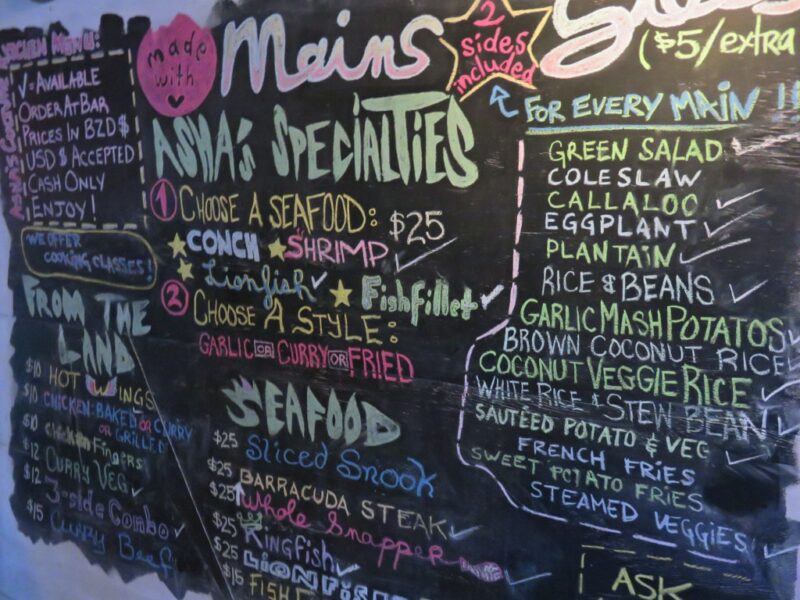 Made with
Mains
2
sides
included
($5/extra
✓=AVAILABLE
ORDER AT BAR
PRICES IN BZD$
USD $ ACCEPTED
CASH ONLY
¡ENJOY!
WE OFFER
COOKING CLASSES!
FROM THE
LAND
$10 HOT WINGS
$10 CHICKEN: BAKED OR CURRY
OR GRILLED
$10 chicken Fingers
$12 CURRY VEG ✓
$12 3-side Combo ✓
$15 Curry Beef
ASHA'S SPECIALTIES
1 CHOOSE A SEAFOOD: $25
★CONCH ★SHRIMP ✓
★Lionfish ✓ ★FishFillet ✓
2 CHOOSE A STYLE:
GARLIC OR CURRY OR FRIED
SEAFOOD
$25 Sliced Snook
$25 BARRACUDA STEAK ✓
$25 Whole Snapper ✓
$25 KINGFISH ✓
$25 LIONFISH
$15 FISH
FOR EVERY MAIN!!
GREEN SALAD ✓
COLESLAW
CALLALOO ✓
EGGPLANT ✓
PLANTAIN ✓
RICE & BEANS ✓
GARLIC MASH POTATOS ✓
BROWN COCONUT RICE
COCONUT VEGGIE RICE ✓
WHITE RICE & STEW BEAN ✓
SAUTÉED POTATO & VEG ✓
FRENCH FRIES
SWEET POTATO FRIES
STEAMED VEGGIES ✓
ASK